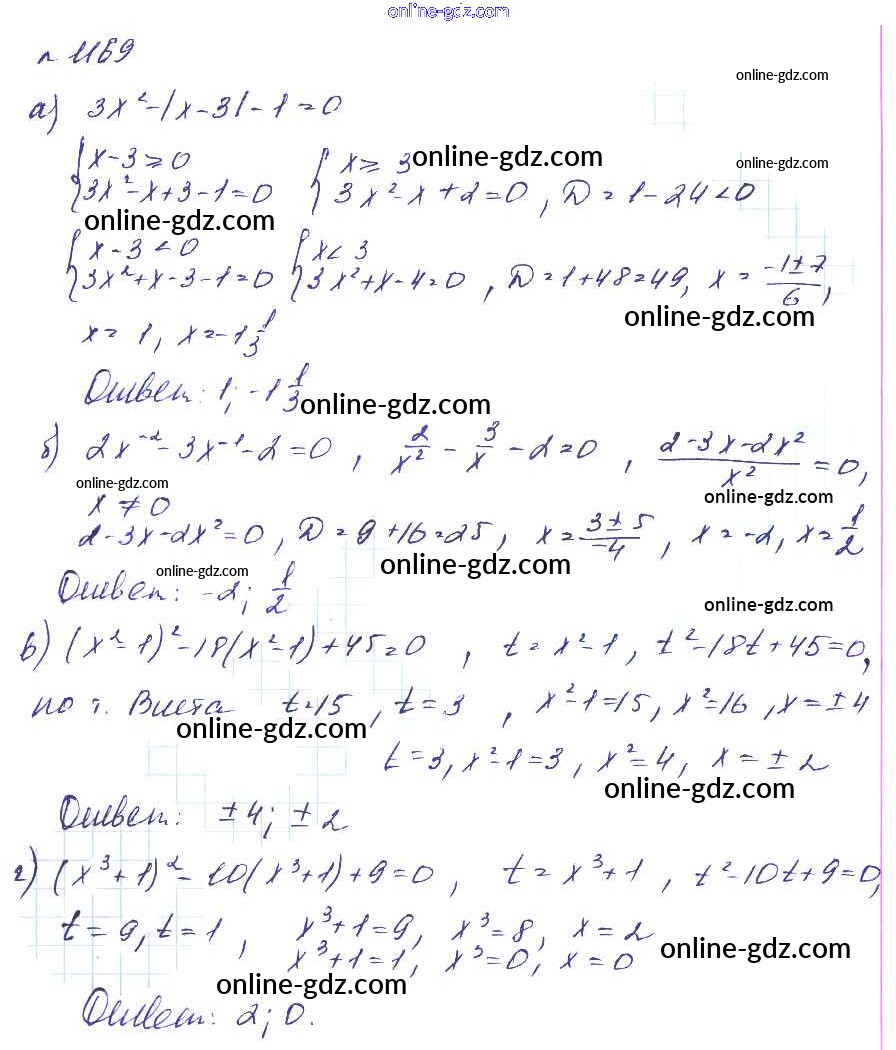 online-gdz.com
n 1169
online-gdz.com
а) 3x² - |x - 3| - 1 = 0
{ x - 3 ⩾ 0 { x ⩾ 3 online-gdz.com online-gdz.com
3x² - x + 3 - 1 = 0 3x² - x + 2 = 0, D = 1 - 24 < 0
online-gdz.com
{ x - 3 < 0 { x < 3
3x² + x - 3 - 1 = 0 3x² + x - 4 = 0, D = 1 + 48 = 49, x = (-1 ± 7)/6,
online-gdz.com
x = 1, x = -1 1/3
Ответ: 1; -1 1/3
online-gdz.com
б) 2x⁻² - 3x⁻¹ - 2 = 0, 2/x² - 3/x - 2 = 0, (2 - 3x - 2x²)/x² = 0,
online-gdz.com online-gdz.com
x ≠ 0
2 - 3x - 2x² = 0, D = 9 + 16 = 25, x = (3 ± 5)/-4, x = -2, x = 1/2
online-gdz.com online-gdz.com
Ответ: -2; 1/2
online-gdz.com
в) (x² - 1)² - 18(x² - 1) + 45 = 0, t = x² - 1, t² - 18t + 45 = 0,
по т. Виета t = 15, t = 3, x² - 1 = 15, x² = 16, x = ± 4
online-gdz.com
t = 3, x² - 1 = 3, x² = 4, x = ± 2
online-gdz.com
Ответ: ± 4; ± 2
г) (x³ + 1)² - 10(x³ + 1) + 9 = 0, t = x³ + 1, t² - 10t + 9 = 0,
t = 9, t = 1, x³ + 1 = 9, x³ = 8, x = 2
x³ + 1 = 1, x³ = 0, x = 0 online-gdz.com
online-gdz.com
Ответ: 2; 0.